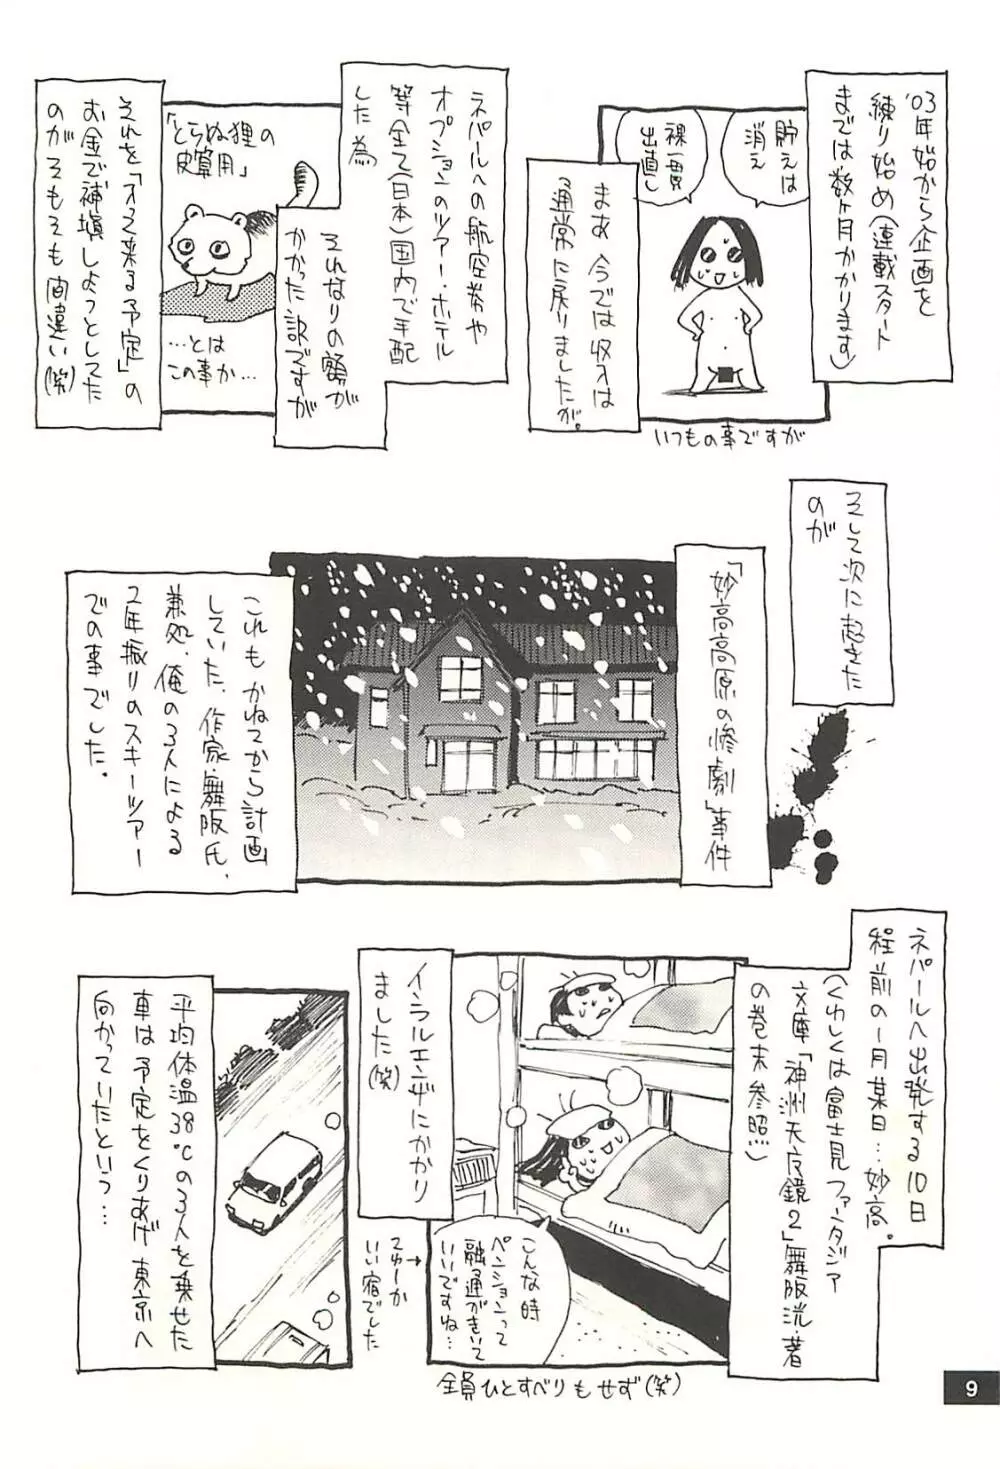 '03年始から企画を
練り始め(連載スタート
までは数ヶ月かかります)
貯えは
消え
裸一貫
出直し
まあ今では収入は
通常に戻りましたが。
いつもの事ですが
ネパールへの航空券や
オプションのツアー・ホテル
等全て(日本)国内で手配
した為
それなりの額が
かかった訳ですが
「とらぬ狸の
皮算用」
…とは
この事か…
それを「オフ来る予定」の
お金で補填しようっとしてた
のがそもそも間違い(笑)
そして次に起きた
のが
「妙高高原の惨劇」事件
これもかねてから計画
していた、作家・舞阪氏、
兼処、俺の3人による
2年振りのスキーツアー
での事でした。
ネパールへ出発する10日
程前の1月某日…妙高。
(くわしくは富士見ファンタジア
文庫「神洲天フ鏡2」舞阪洸・著
の巻末参照!!)
こんな時
ペンションって
融通がきいて
いいですね…
イ
ルエンザにかかり
ました(笑)
てゆーか
いい宿でした
→
全員ひとすべりもせず(笑)
平均体温38℃の3人を乗せた
車は予定をくりあげ東京へ
向かっていたという…
9